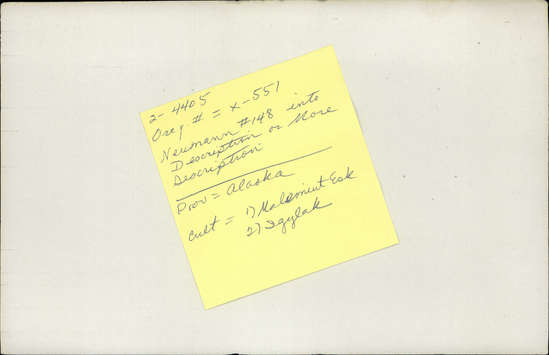 2-4405
Orig # = x-551
Neumann #148 into
Description or More
Description
Prov = Alaska
Cult = 1) Malemiut Esk
2)